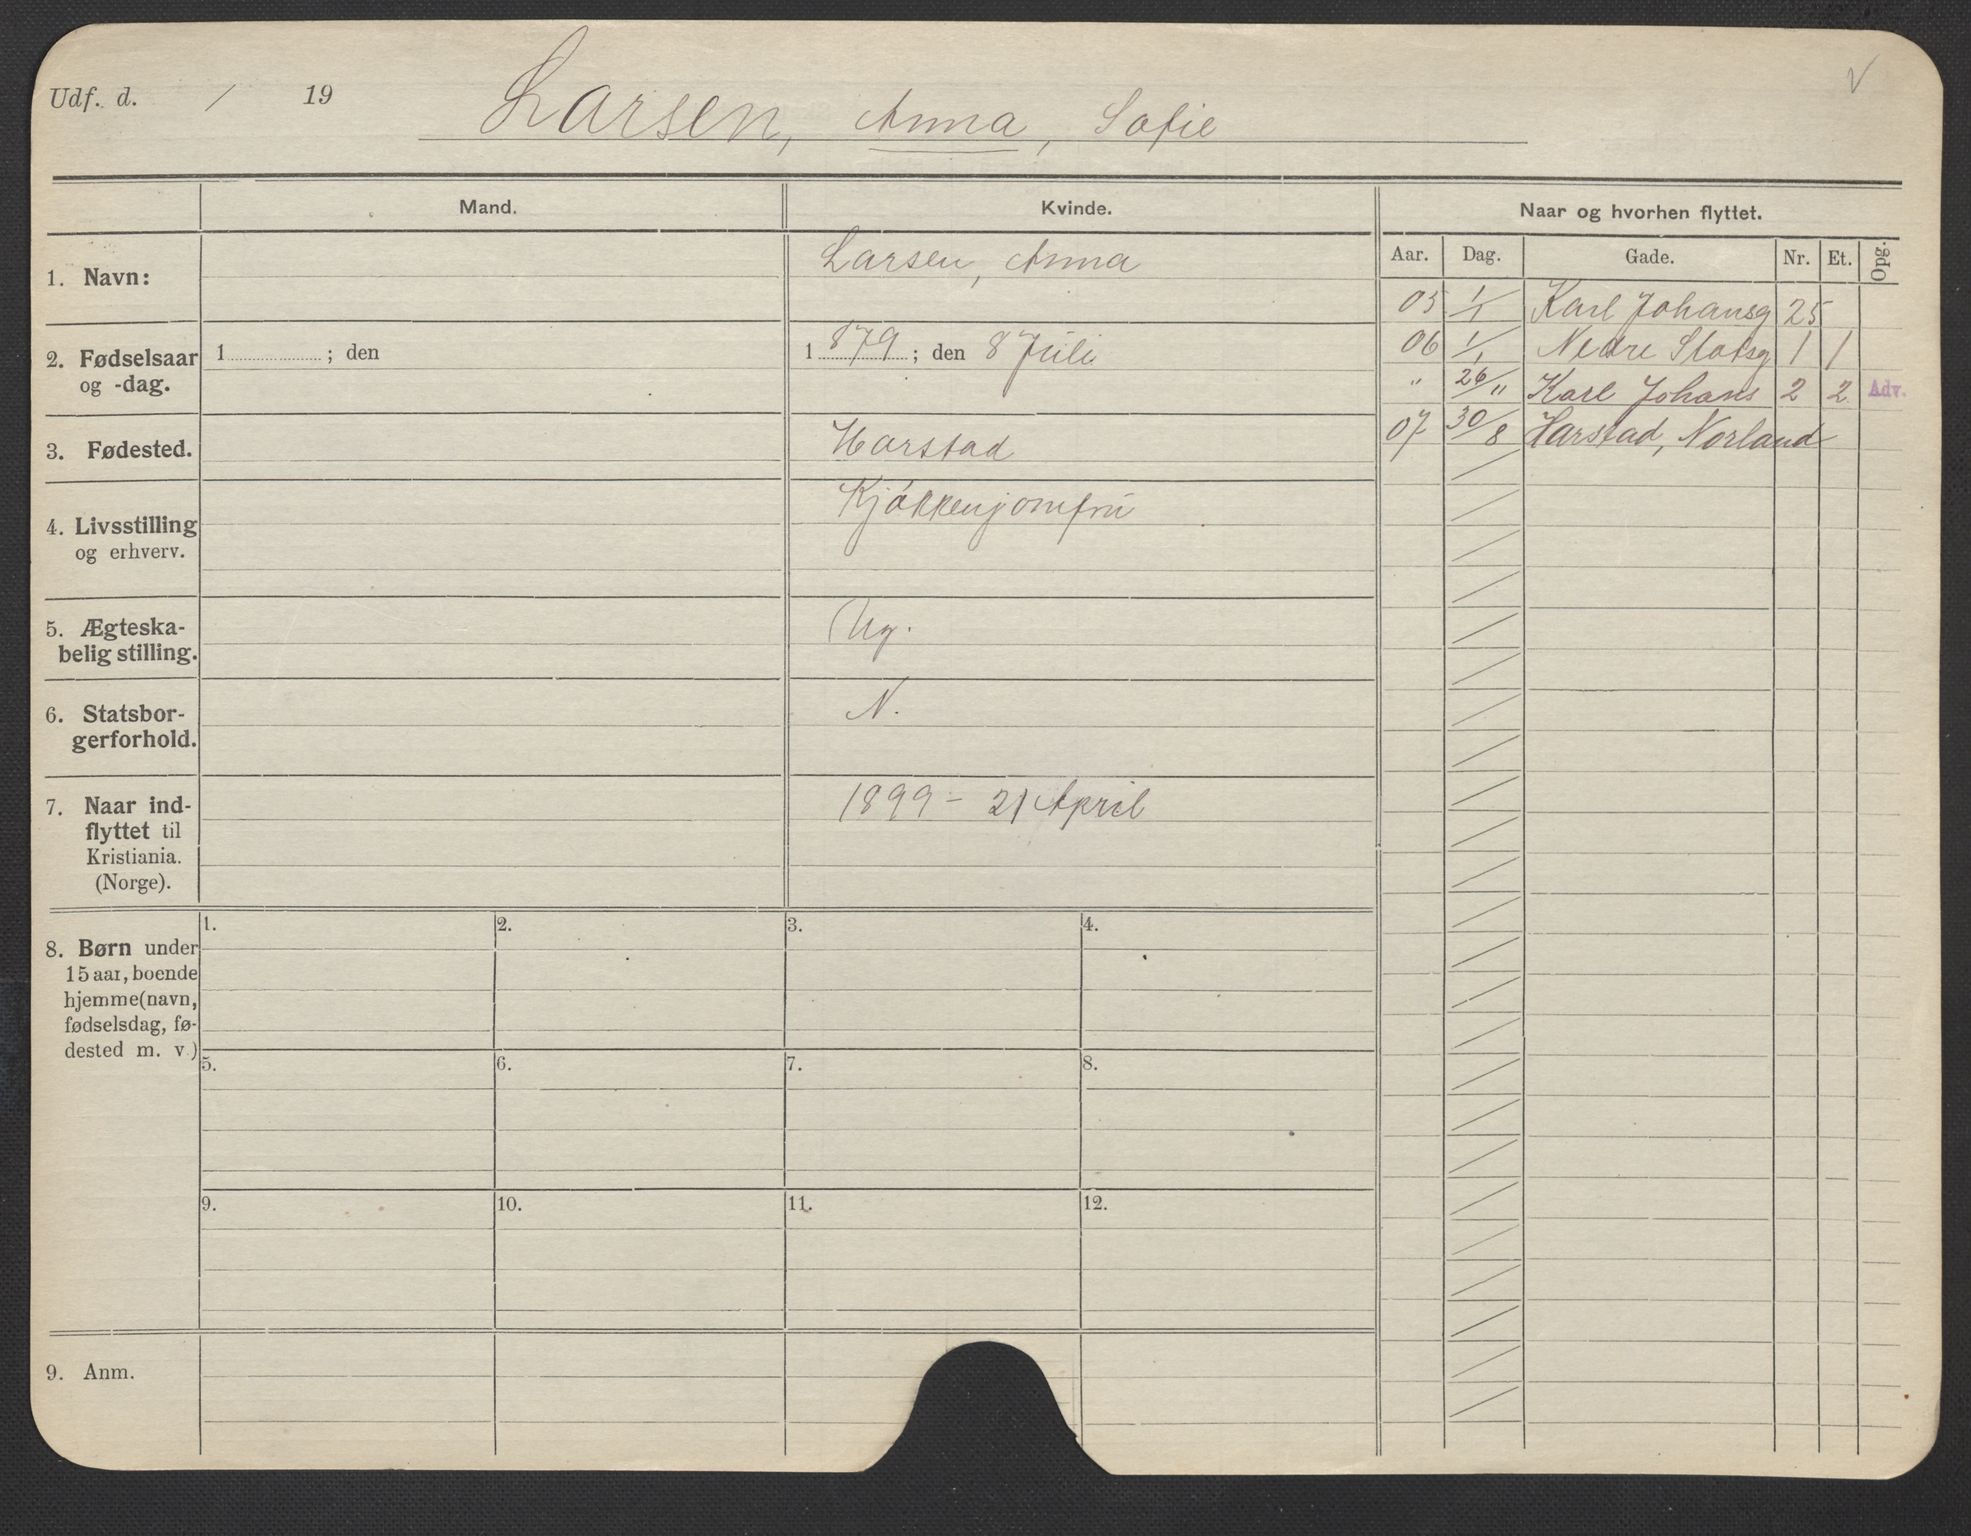 Udf. d. / 19
Larsen, Anna, Sofie
V
Mand.
Kvinde.
Naar og hvorhen flyttet.
Aar. Dag. Gade. Nr. Et. Opg.
1. Navn:
Larsen, Anna
2. Fødselsaar
og -dag.
1 ; den
1 879 ; den 8 Juli
3. Fødested.
Harstad
4. Livsstilling
og erhverv.
Kjøkkenjomfru
5. Ægteska-
belig stilling.
Ug.
6. Statsbor-
gerforhold.
N.
7. Naar ind-
flyttet til
Kristiania.
(Norge).
1899 - 21 April
8. Børn under
15 aar, boende
hjemme (navn,
fødselsdag, fø-
dested m. v.)
1. 2. 3. 4.
5. 6. 7. 8.
9. 10. 11. 12.
9. Anm.
05 1/1 Karl Johansg 25
06 1/1 Nedre Slotsg 1 1
" 26/11 Karl Johans 2 2 Adv.
07 30/8 Harstad, Norland